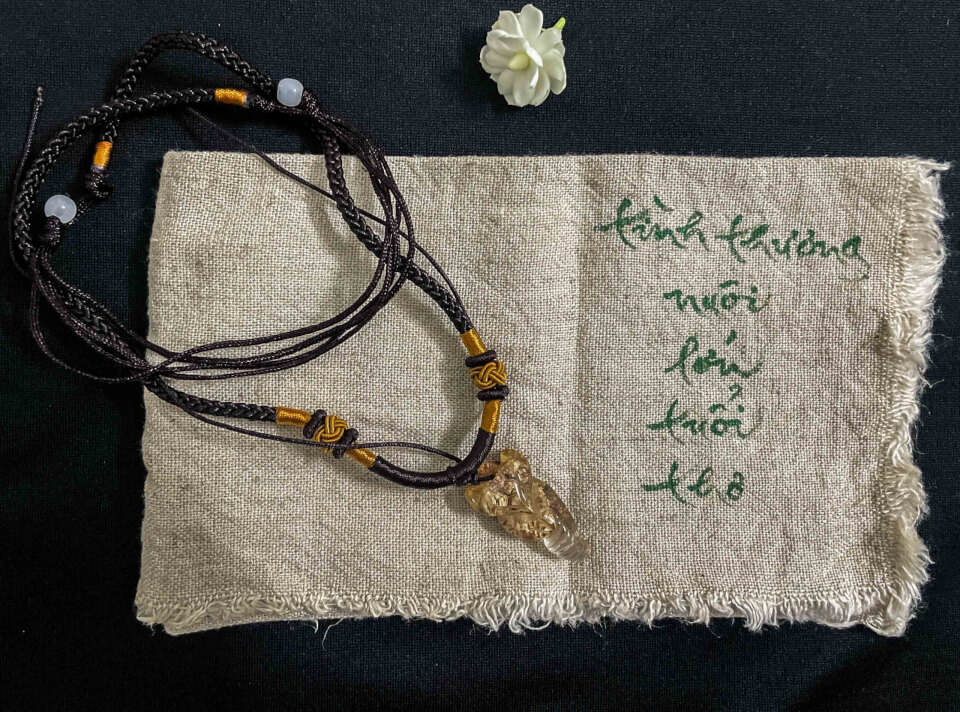 tình thương
nuôi
lớn
tuổi
thơ